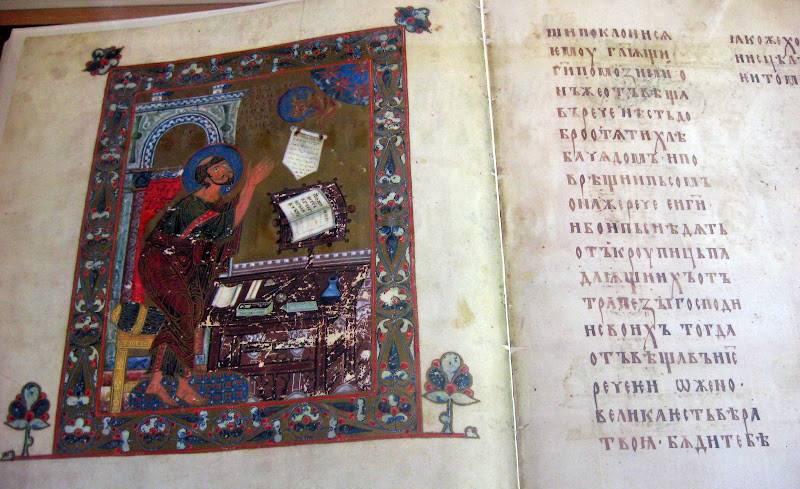 ШИ ПОКЛОНИСѦ
ѤМОУ ГЛ҃ѬЩИ
Г҃И ПОМОЗИ МИ О
НЪ ЖЕ ОТЪВѢЩА
ВЪ РЕЧЕ НѢСТЬ ДО
БРО ОТѦТИ ХЛѢ
БА ЧѦДОМЪ И ПО
ВРѢЩИ ПЬСОМЪ
ОНА ЖЕ РЕЧЕ ЕИ Г҃И
ИБО И ПЬСИ ѢДѦТЬ
ОТЪ КРОУПИЦЬ ПА
ДАѬЩИИХЪ ОТ
ТРАПЕЗЫ ГОСПОДИ
И СВОИХЪ ТОГДА
ОТЪВѢЩАВЪ И҃С
РЕЧЕ ЕИ Ѡ ЖЕНО·
ВЕЛИКА ѤСТЬ ВѢРА
ТВОꙖ· БѪДИ ТЕБѢ
ꙖКОЖЕ ХО
И ИСЦѢЛ